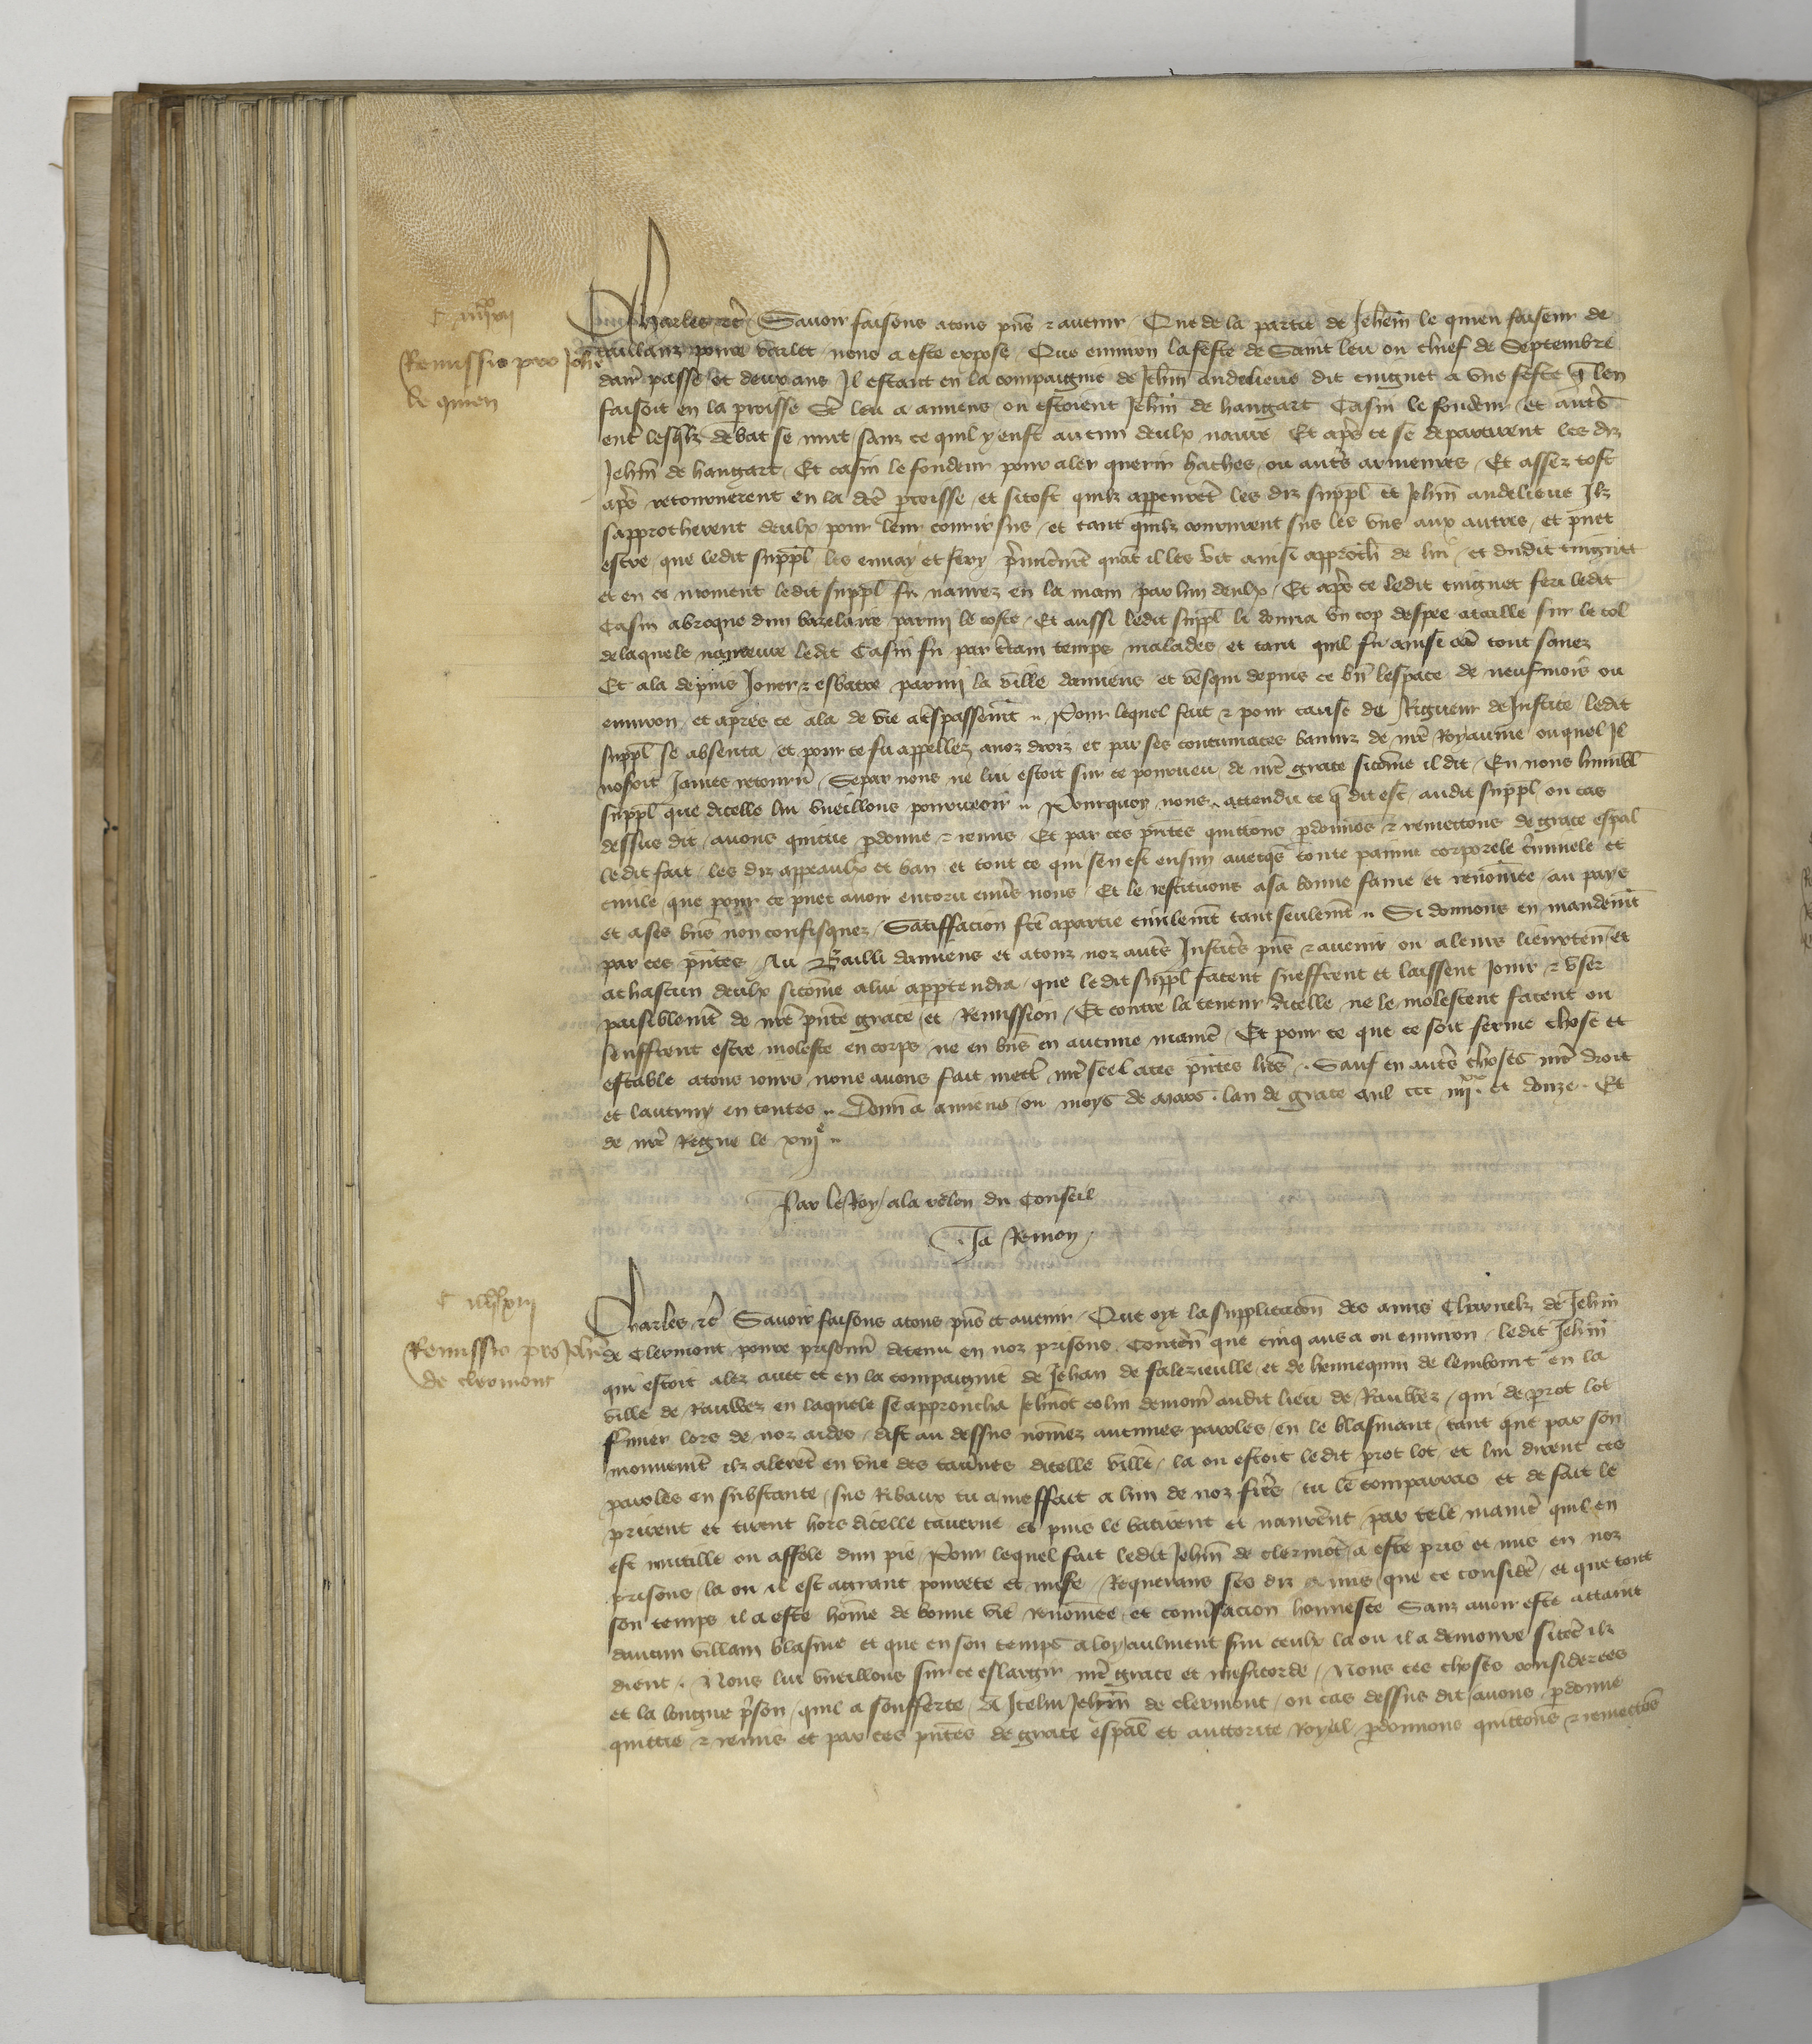 C iiiixx xii
Charles etc. Savoir faisons a tous pñs et avenir Que de la partie de Jehan le quien faiseur de
Remissio pro Johẽ
le quien
povre varlet nous a este expose Que environ la feste de Saint Leu ou chief de Septembre
darr passe et deux ans Il estant en la compaignie de Jehñ andelieus dit tuignet a une feste q̃ len
faisoit en la proisse St leu a amiens ou estoient Jehñ de hangart Casin le fondeur et autrs
entr lesqlz debat se mut sanz ce quil y eust aucun deulx navre Et aprs ce se departirent les diz
Jehñ de hangart Et casin le fondeur pour aler querir haches ou autrs armeures Et assez tost
aprs retournerent en la dcẽ proisse et sitost quilz apperceurẽt les diz suppl et Jehñ andelieus Ilz
sapprocherent deulx pour leur courir sus et tant quilz coururent sus les uns aux autres et puet
estre que ledit suppl les envay et fery prmieremẽt quãt il les vit ainsi approch de lui et dudit tuignet
et en ce moment ledit suppl fu navrez en la main par lun deulx Et aprs ce ledit tuignet feri ledit
Casin abroque dun bazelaire parmi le coste Et aussi ledit suppl li donna un cop despee ataille sur le col
de laquele navreure ledit Casin fu par crtain temps malades et tant quil fu ainsi cõe tout sanez
Et ala depuis Jouer et esbatre parmi la ville damiens et vesqui depuis ce bñ lespace de neuf mois ou
environ et apres ce ala de vie a trspassemẽt Pour lequel fait et pour cause de Rigueur de Justice ledit
suppl se absenta et pour ce fu appellez a noz droiz et par ses contumaces banniz de nrẽ Royaume ouquel Il
nosoit James retournr Se par nous ne lui estoit sur ce pourveu de nrẽ grace sicõme il dit En nous humbl
suppl que dicelle lui vueillons pourveoir Pourquoy nous attendu ce q̃ dit est audit suppl ou cas
dessus dit avons quittie pdonne et remis Et par ces pñtes quittons pdonnõs et remettons de grace espãl
le dit fait les diz appeaulx et ban et tout ce qui sen est ensuy avecqs toute painne corporele criminele et
civile que pour ce puet avoir encoru envrs nous Et le restituons a sa bonne fame et renõmee au pays
et a ses bñs non confisquez Satiffacion fcẽ a partie civilemẽt tant seulemẽt Si donnons en mandemẽt
par ces pñtes Au Bailli damiens et a touz noz autrs Justicrs pñs et avenir ou a leurs lieuxtenẽ et
a chascun deulx sicõme a lui apptendra que ledit suppl facent sueffrent et laissent Jouir et user
paisiblemẽt de nrẽ pñte grace et Remission Et contre la teneur dicelle ne le molestent facent ou
sueffrent estre moleste en corps ne en bñs en aucune maniẽ Et pour ce que ce soit ferme chose et
estable a tous jours nous avons fait mettr nrẽ scel a ces pñtes lrẽs Sauf en autrs choses nrẽ droit
et lautruy en toutes Donñ a amiens ou moys de Mars lan de grace Mil ccc iiiixx et douze Et
de nrẽ Regne le xiiie
Par le Roy a la relon du Conseil
Ja Remon
C iiiixx xiii
Charles etc. Savoir faisons a tous pñs et avenir Que oye la supplicaciõn des amis Charnelz de Jehñ
Remissio pro Johẽ
de cleromont
de Clermont povre prisonnr detenu en noz prisons Contenẽ que cinq ans a ou environ ledit Jehñ
qui estoit alez avec et en la compaignie de Jehan de falezieulle et de hennequin de lembourt en la
ville de Rauwez en laquele se approucha Jehñot colin demourr audit lieu de Rauwez qui de prot lot
frmier lors de noz aides dist au dessus nõmez aucunes paroles en le blasmant tant que par son
mouvemẽt ilz alerẽt en une des tavrnes dicelle ville la ou estoit ledit prot lot et lui dirent ces
paroles en substance sus Ribaux tu a meffait a lun de noz frrs tu le comparras et de fait le
prirent et tirent hors dicelle taverne et puis le batirent et navrẽrent par tele maniẽ quil en
est mutille ou affole dun pie Pour lequel fait ledit Jehñ de clermõt a este pris et mis en noz
prisons la ou il est a grant povrete et misẽ Requerans ses diz amis que ce considrẽ et que tout
son temps il a este hõme de bonne vie renõmee et convrsacion honneste Sanz avoir este attaint
daucun villain blasme et que en son temps a loyaulment suy ceulx la ou il a demoure sicõe ilz
dient Nous lui vueillons sur ce eslargir nrẽ grace et misricorde Nous ces choses considerees
et la longue prson quil a soufferte A Icelui Jehñ de clermont ou cas dessus dit avons pdonne
quittie et remis et par ces pñtes de grace espãl et auctorite Royal pdonnons quittons et remettõs